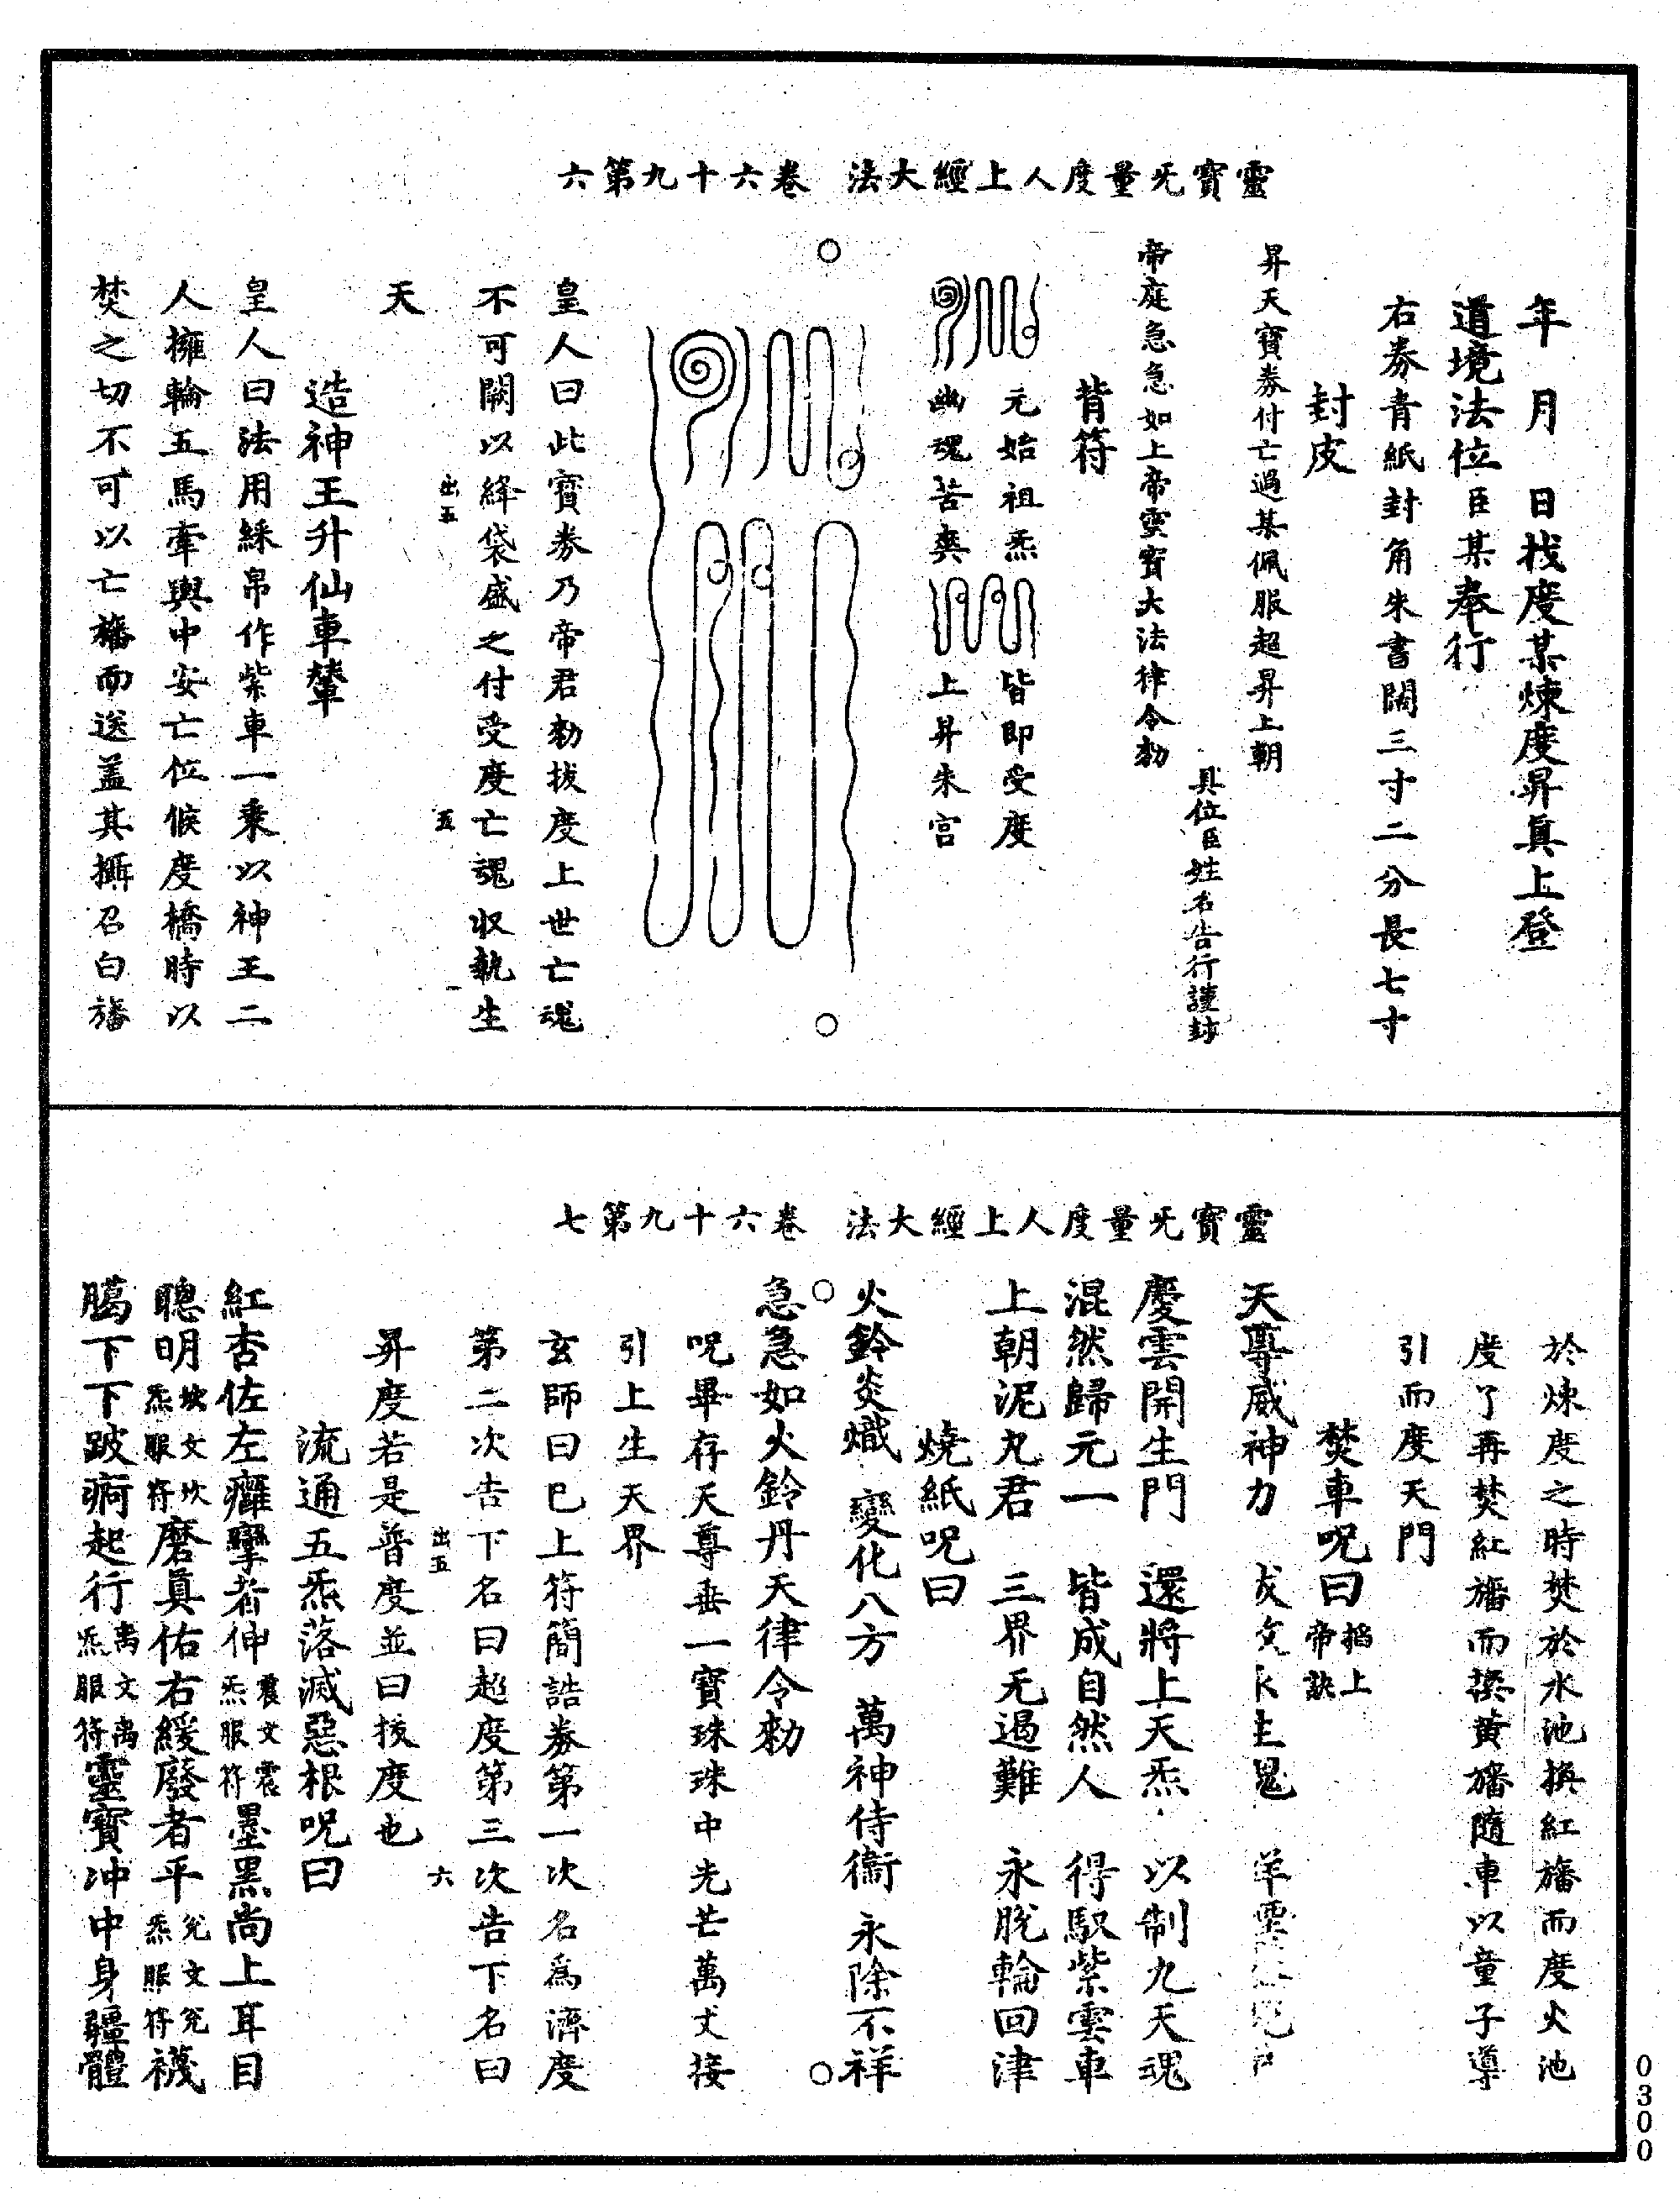 靈寶无量度人上經大法　卷六十九第六
年　月　日拔度某煉度昇眞上登
道境法位臣某奉行
右券青紙封角朱書闊三寸二分長七寸
封皮
昇天寶券付亡過某佩服超昇上朝
具位臣姓名告行謹封
帝庭急急如上帝靈寶大法律令勑
背符
元始祖炁　皆即受度
幽魂苦爽　上昇朱宮
皇人曰此寶券乃帝君勑拔度上世亡魂
不可闕以絳袋盛之付受度亡魂収執生
天
出五　五
造神王升仙車輦
皇人曰法用綵帛作紫車一乘以神王二
人擁輪五馬牽輿中安亡位候度橋時以
焚之切不可以亡旛而送盖其攝召白旛
靈寶无量度人上經大法　卷六十九第七
於煉度之時焚於水池換紅旛而度火池
度了再焚紅旛而換黄旛隨車以童子導
引而度天門
焚車呪曰掐上帝訣
天尊威神力
慶雲開生門　還將上天炁　以制九天魂
混然歸元一　皆成自然人　得馭紫雲車
上朝泥丸君　三界无遏難　永脫輪回津
燒紙呪曰
火鈴炎熾　變化八方　萬神侍衞　永除不祥
急急如火鈴丹天律令勑
呪畢存天尊垂一寶珠珠中光芒萬丈接
引上生天界
玄師曰已上符簡誥券第一次名爲濟度
第二次告下名曰超度第三次告下名曰
昇度若是普度並曰拔度也
出五　六
流通五炁落滅惡根呪曰
紅杏佐左癰攣者伸震文震炁服符墨黑尚上耳目
聰明坎文坎炁服符磨眞佑右緩廢者平兊文兊炁服符襪
臈下下跛痾起行离文离炁服符靈寶冲中身疆體
0300